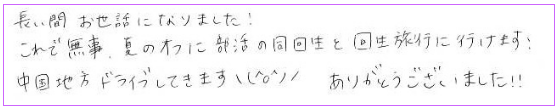 長い間 お世話になりました!
これで無事、夏のオフに部活の同回生と回生旅行に行けます!
中国地方ドライブしてきます\(^o^)/ ありがとうございました!!